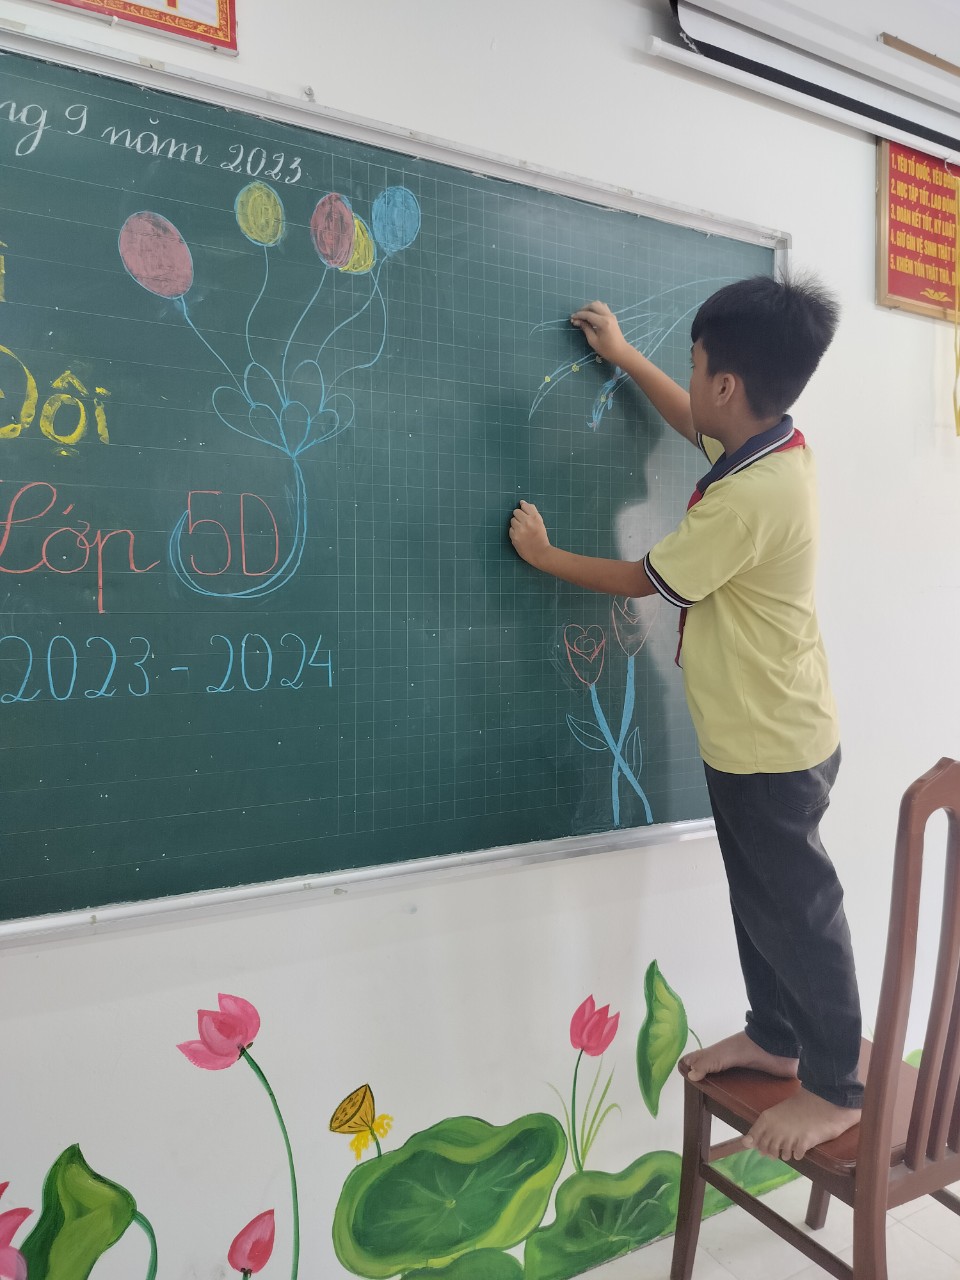 9 năm 2023
Đội
Lớp 5D
2023 - 2024
1. YÊU TỔ QUỐC, YÊU
2. HỌC TẬP TỐT, LAO ĐỘNG
3. ĐOÀN KẾT TỐT, KỶ LUẬT
4. GIỮ GÌN VỆ SINH THẬT
5. KHIÊM TỐN THẬT THÀ,